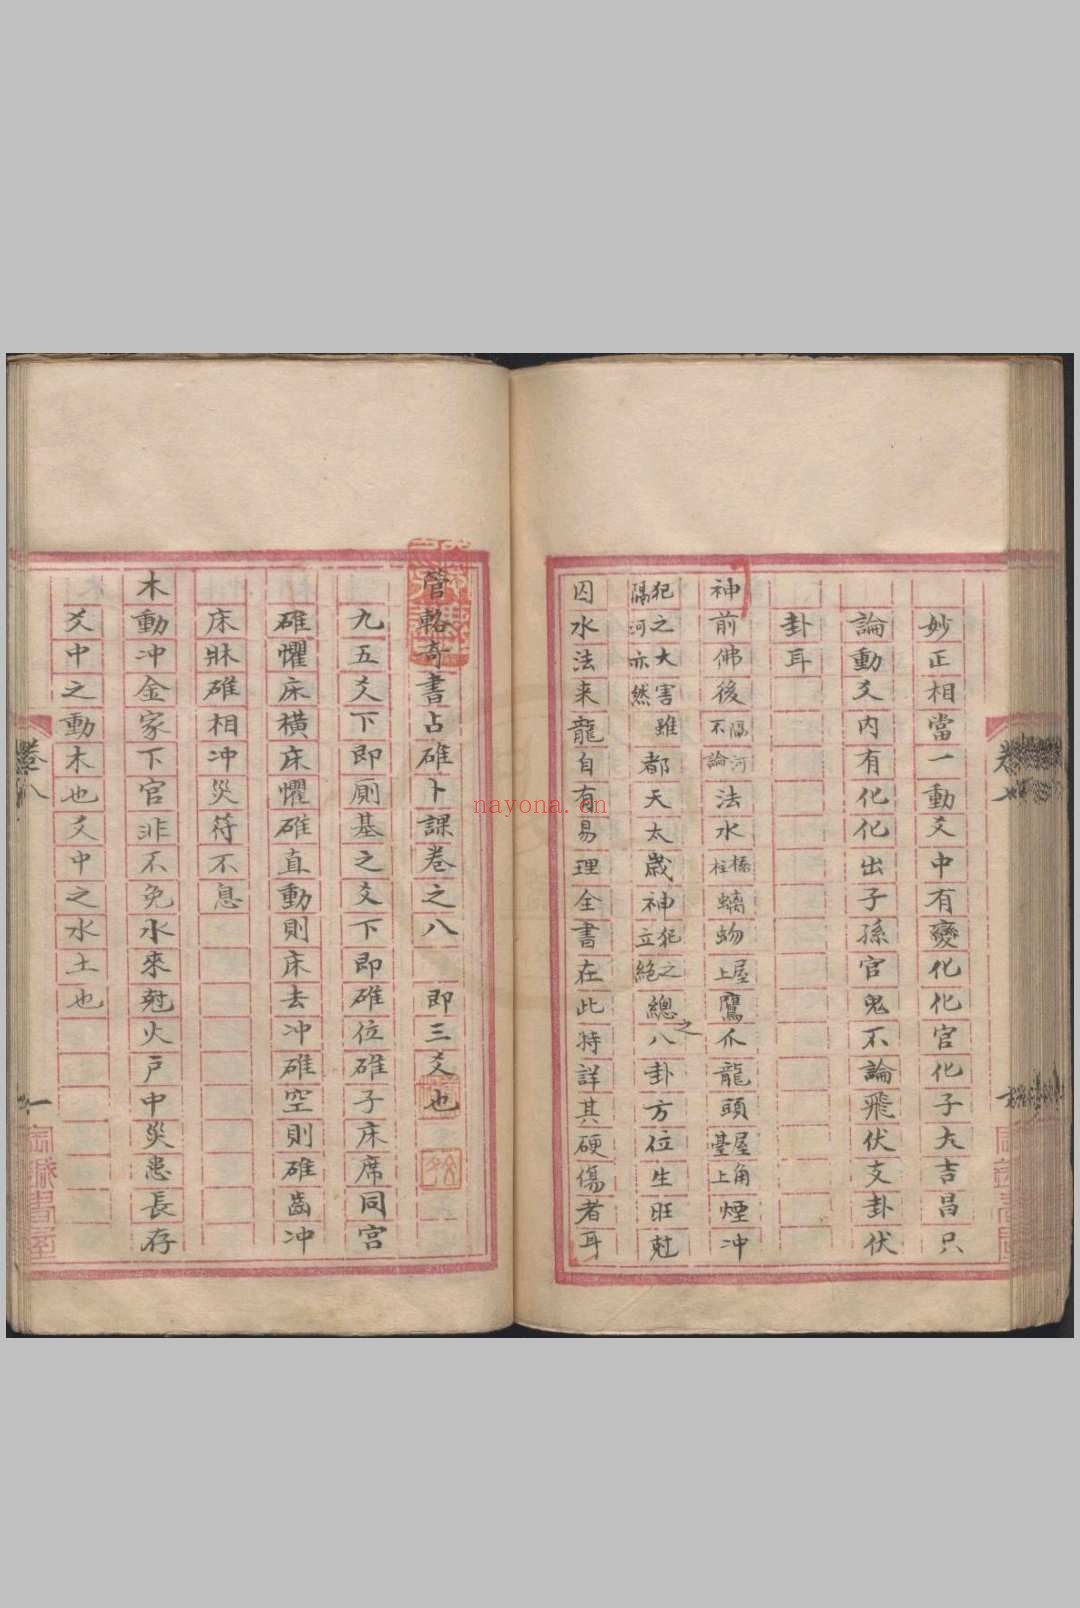 妙正相當一動爻中有變化化官化子大吉昌只
論動爻內有化化出子孫官鬼不論飛伏支卦伏
卦耳
神前佛後隔河不論法水橋柱螭蚴屋上鷹爪龍頭屋角臺上煙冲
犯之大害隔河亦然雖都天太歲神犯之立絕總之八卦方位生旺尅
囚水法来龍自有易理全書在此特詳其硬傷者耳
管輅奇書占碓卜課卷之八 即三爻也
九五爻下即厠基之爻下即碓位碓子床席同宮
碓懼床橫床懼碓直動則床去冲碓空則碓齒冲
床牀碓相冲災符不息
木動冲金家下官非不免水來尅火戶中災患長存
爻中之動木也爻中之水土也
卷八
一
nayona.cn